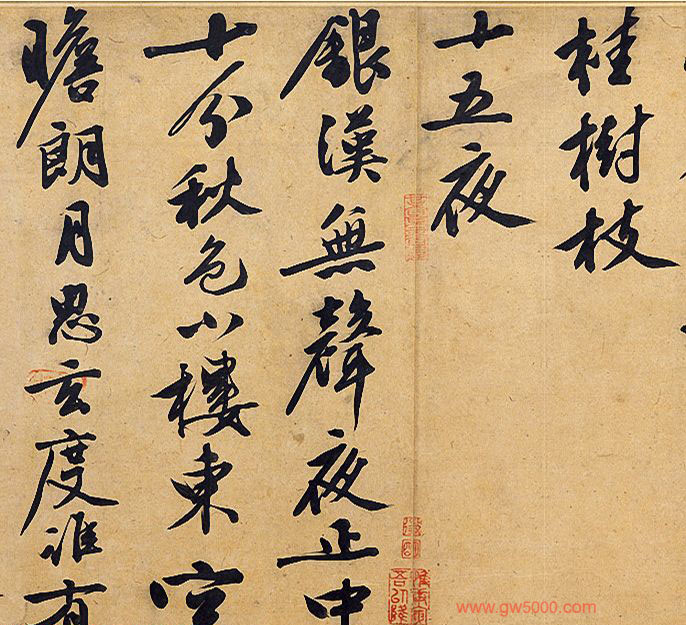 桂樹枝
十五夜
銀漢無聲夜正中
十分秋色小樓東
瞻朗月思玄度誰有
www.gw5000.com